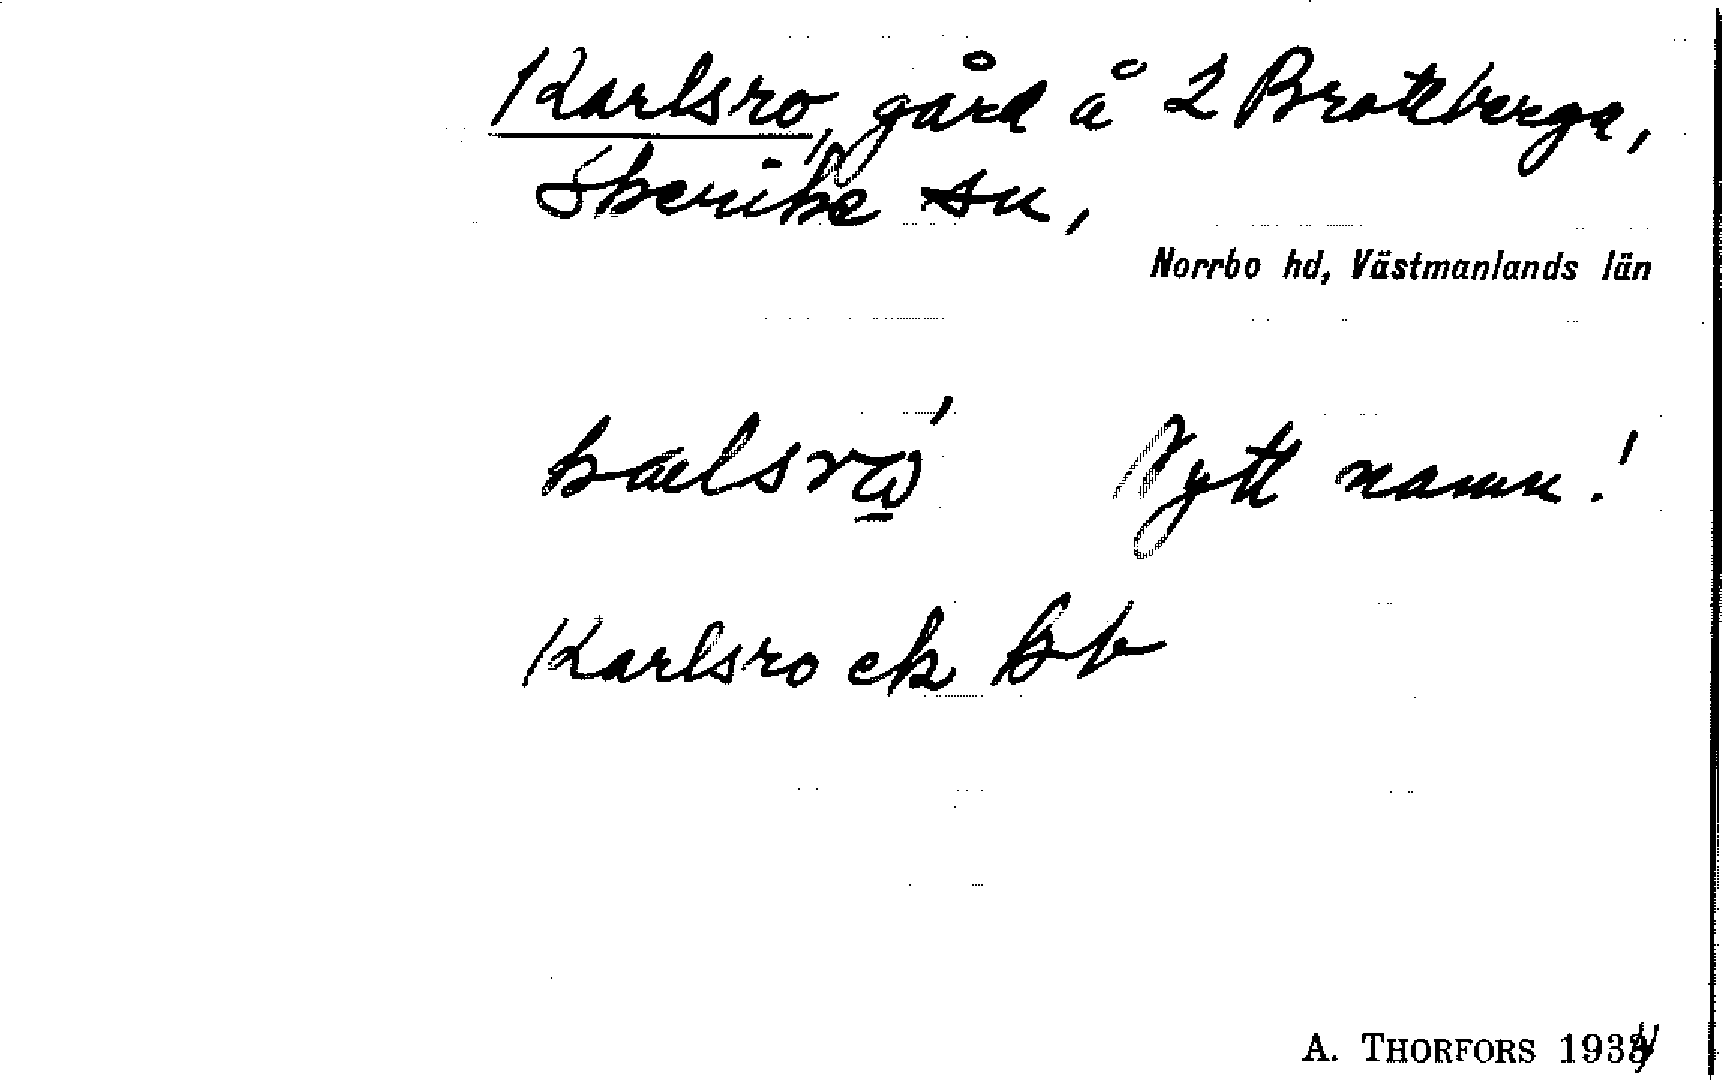 Karlsro, gård å 2 Brottberga,
Skerike sn,
Norrbo hd, Västmanlands län
Nytt namn!
Karlsro ek kb
A. THORFORS 1934